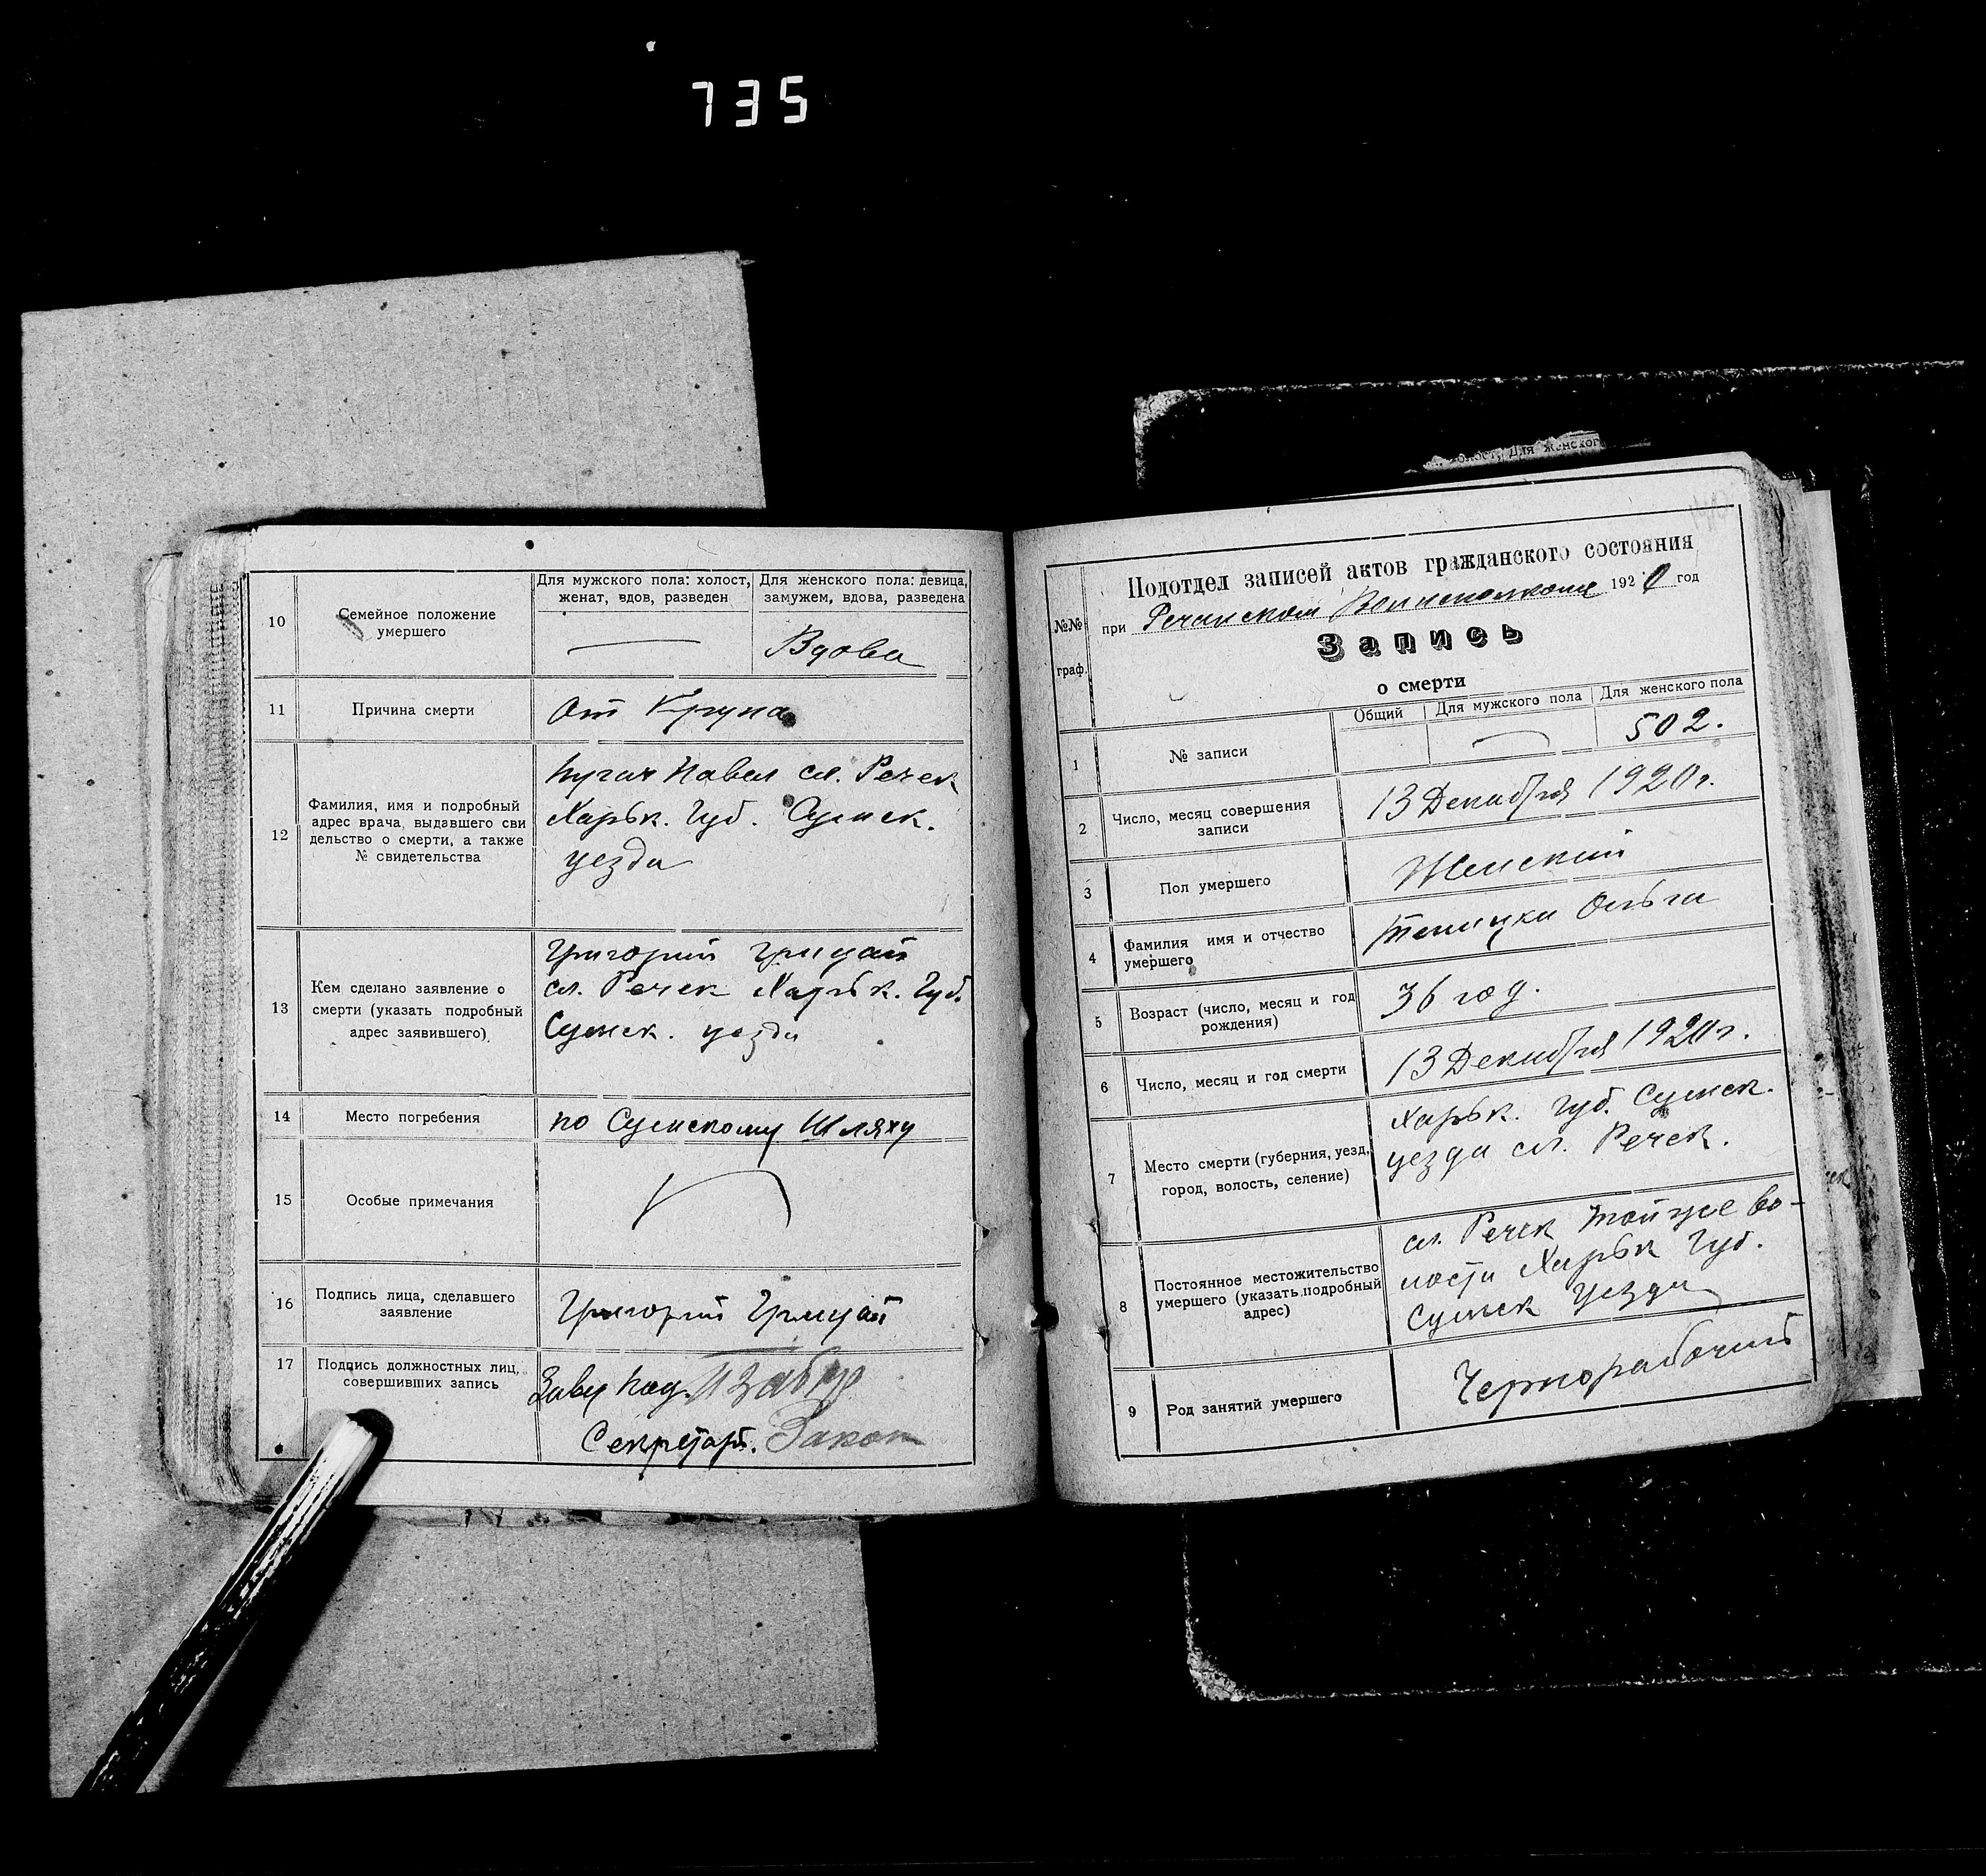 735
10
Семейное положение
умершего
Для мужского пола: холост,
женат, вдов, разведен
Для женского пола: девица,
замужем, вдова, разведена
Вдова
11
Причина смерти
От Крупа
12
Фамилия, имя и подробный
адрес врача, выдавшего сви
дельство о смерти, а также
№ свидетельства
Пугач Павел сл. Речек
Харьк. Губ. Сумск.
уезда
13
Кем сделано заявление о
смерти (указать подробный
адрес заявившего)
Григорий Грицай
сл. Речек Харьк. Губ.
Сумск. уезда
14
Место погребения
по Сумскому Шляху
15
Особые примечания
16
Подпись лица, сделавшего
заявление
Григорий Грицай
17
Подпись должностных лиц,
совершивших запись
Завед Под.
Секретарь.
Для женског
№№
граф.
Подотдел записей актов гражданского состояния
при Речанском Волисполкоме 1920 год
Запись
о смерти
1
№ записи
Общий
Для мужского пола
Для женского пола
502.
2
Число, месяц совершения
записи
13 Декабря 1920 г.
3
Пол умершего
Женский
4
Фамилия имя и отчество
умершего
Ольга
5
Возраст (число, месяц и год
рождения)
36 год.
6
Число, месяц и год смерти
13 Декабря 1920 г.
7
Место смерти (губерния, уезд,
город, волость, селение)
Харьк. Губ. Сумск.
уезда сл. Речек.
8
Постоянное местожительство
умершего (указать подробный
адрес)
сл. Речек Той же во-
лости Харьк Губ.
Сумск уезда
9
Род занятий умершего
Чернорабочий